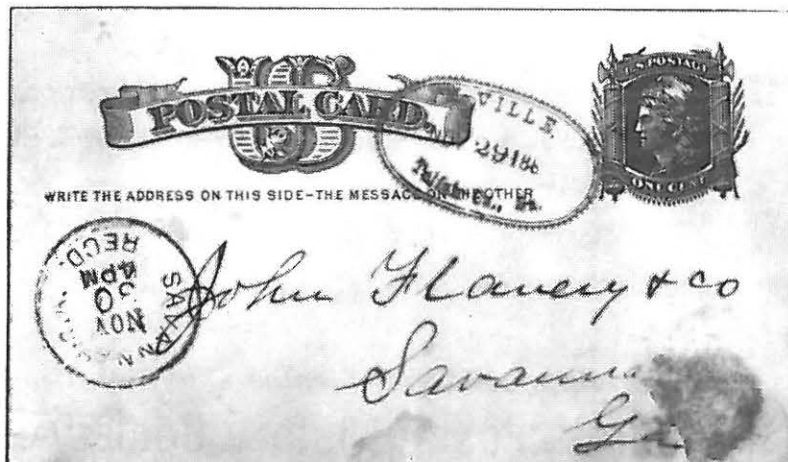 US
POSTAL CARD.
U.S. POSTAGE
ONE CENT
VILLE
29 188
WRITE THE ADDRESS ON THIS SIDE-THE MESSAGE ON THE OTHER
SAVANNAH
NOV
30
4PM
RECD.
John Flanery & co
Savanna
Ga